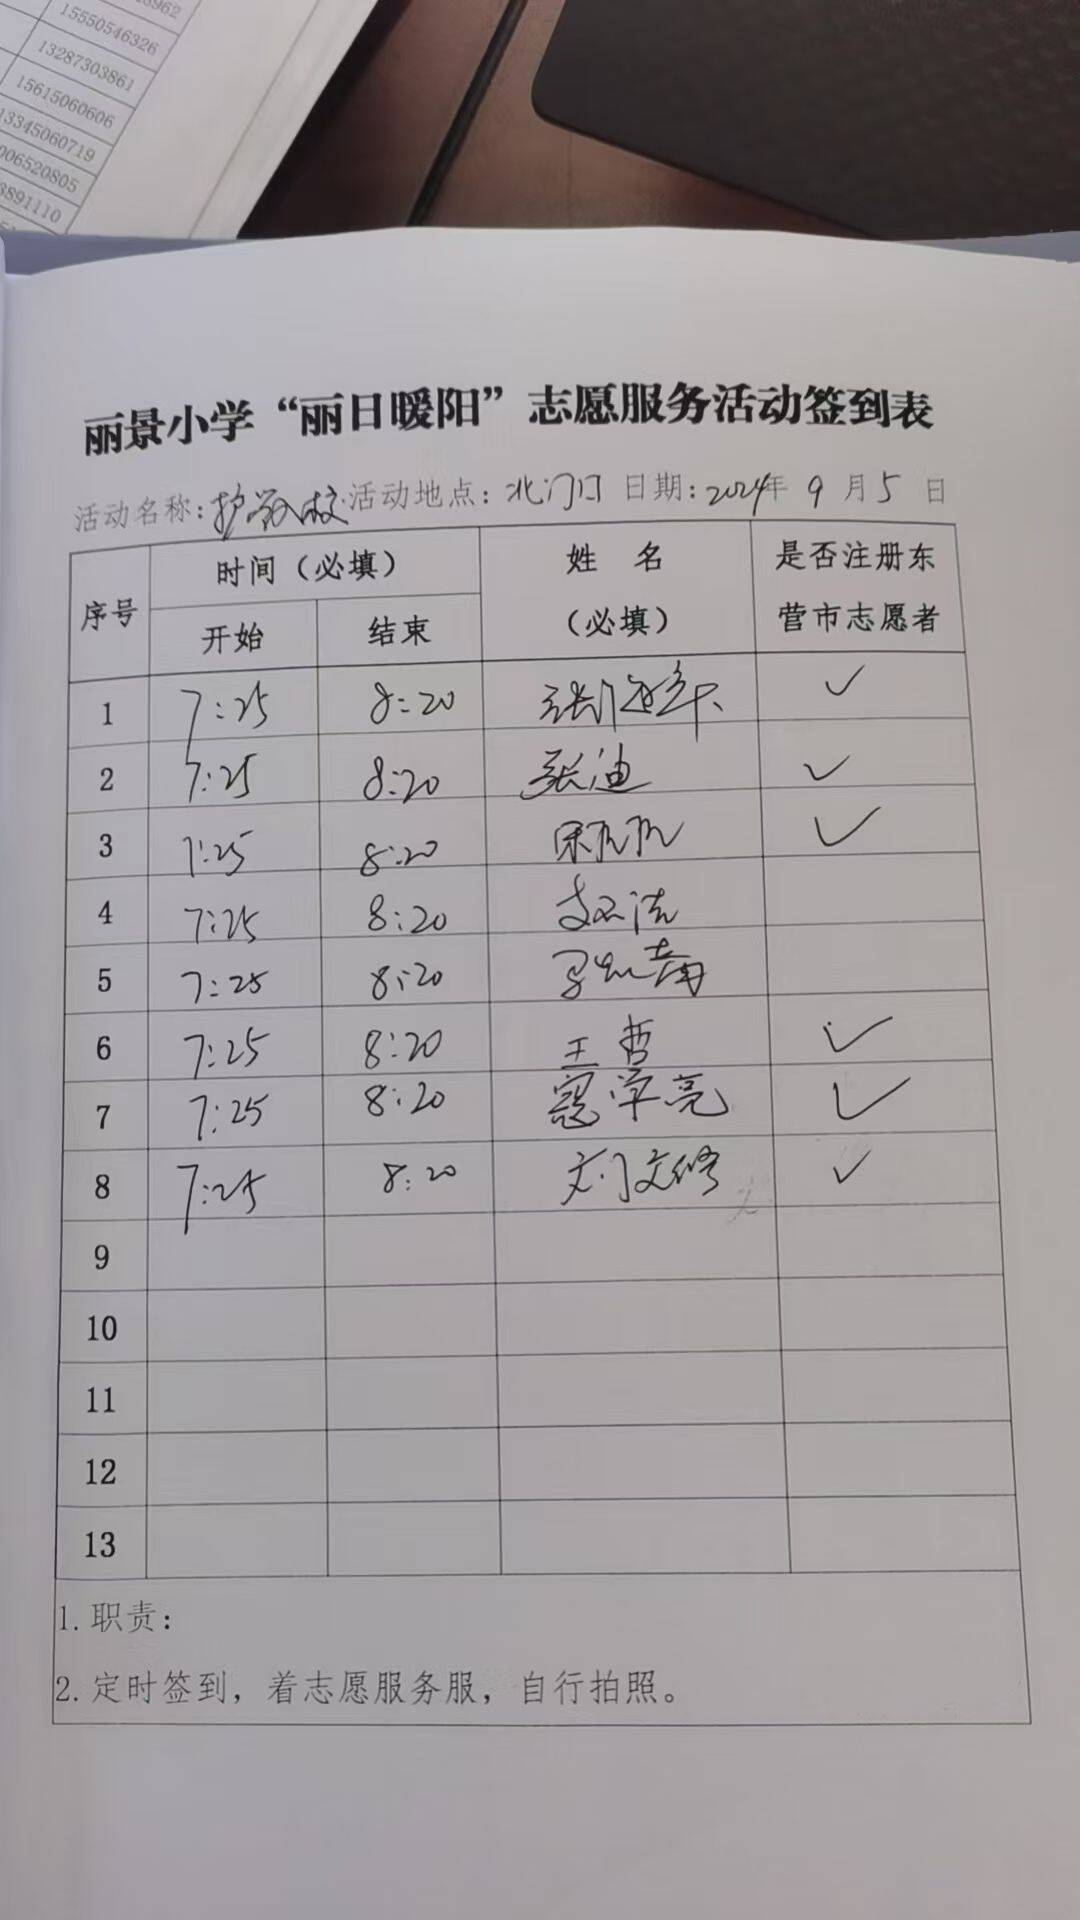 15550546326
13287303861
15615060606
13345060719
006520805
3891110
丽景小学“丽日暖阳”志愿服务活动签到表
活动名称:护学入校 活动地点:北门口 日期:2024年 9 月 5 日
序号 时间（必填） 姓 名（必填） 是否注册东营市志愿者
开始 结束
1 7:25 8:20 ✓
2 7:25 8:20 张迪 ✓
3 7:25 8:20 ✓
4 7:25 8:20
5 7:25 8:20
6 7:25 8:20 王哲 ✓
7 7:25 8:20 寇学亮 ✓
8 7:25 8:20 刘文修 ✓
9
10
11
12
13
1. 职责:
2. 定时签到，着志愿服务服，自行拍照。